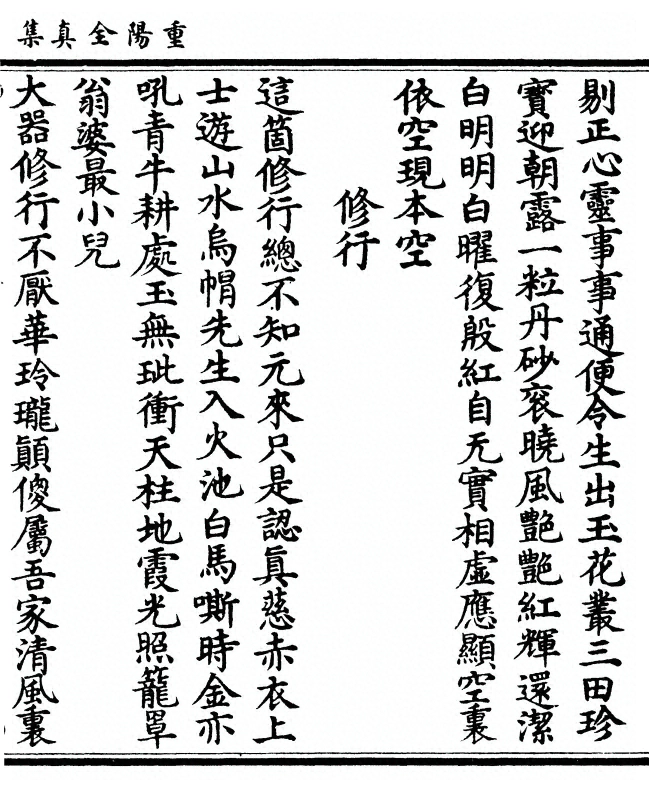 重陽全真集
剔正心靈事事通便令生出玉花叢三田珍
寶迎朝露一粒丹砂衮曉風艷艷紅輝還潔
白明明白曜復殷紅自无實相虛應顯空裏
依空現本空
修行
這箇修行總不知元來只是認真慈赤衣上
士遊山水烏帽先生入火池白馬嘶時金亦
吼青牛耕處玉無玼衝天柱地霞光照籠罩
翁婆最小兒
大器修行不厭華玲瓏顛傻屬吾家清風裏